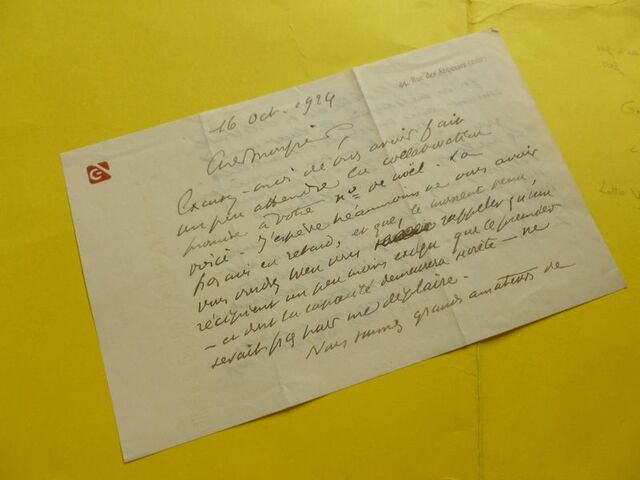 44, Rue des Abbesses (XVIIIe)
16 Oct. 1924
G
Cher Monsieur,
Excusez-moi de vous avoir fait
un peu attendre la collaboration
promise à votre nº de noël. La
voici. J'espère néanmoins ne vous avoir
pas mis en retard, et que, le moment venu,
vous voudrez bien vous rappeler qu'un
récipient un peu moins exigu que le premier
— et dont la capacité demeurera secrète — ne
serait pas pour me déplaire.
Nous sommes grands amateurs de